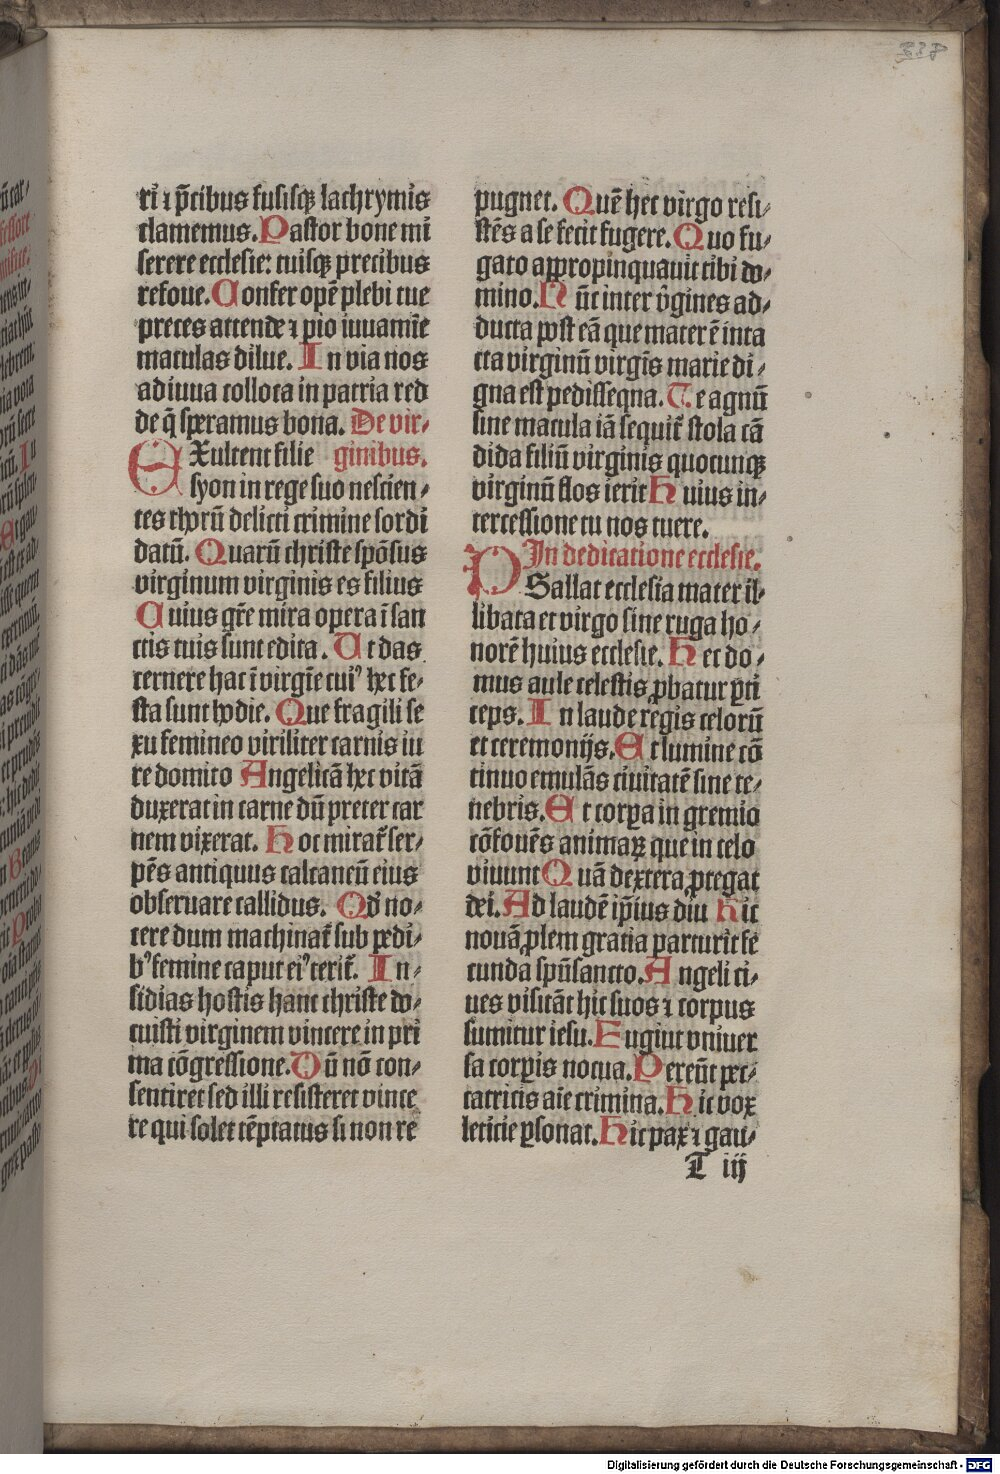 338
ri ⁊ p̄cibus fusisqꝫ lachrymis
clamemus. Pastor bone mi
serere ecclesie: tuisqꝫ precibus
refoue. Confer opē plebi tue
preces attende ⁊ pio iuuamīe
maculas dilue. In via nos
adiuua colloca in patria red
de q̄ speramus bona. De vir⸗
EXultent filie ginibus.
syon in rege suo nescien⸗
tes thorū delicti crimine sordi
datū. Quarū christe spōsus
virginum virginis es filius
Cuius gr̄e mira opera ī san
ctis tuis sunt edita. Ut das
cernere hac ī virgīe cuiꝰ hec fe⸗
sta sunt hodie. Que fragili se
xu femineo viriliter carnis iu
re domito Angelicā hec vitā
duxerat in carne dū preter car
nem vixerat. Hoc mirat᷑ ser⸗
pēs antiquus calcaneū eius
obseruare callidus. Qd̓ no⸗
cere dum machinat᷑ sub pedi⸗
bꝰ femine caput eiꝰ terit᷑. In⸗
sidias hostis hanc christe do⸗
cuisti virginem vincere in pri
ma cōgressione. Dū nō con⸗
sentiret sed illi resisteret vince
re qui solet tēptatus si non re
pugnet. Quē hec virgo resi⸗
stēs a se fecit fugere. Quo fu⸗
gato appropinquauit tibi do⸗
mino. Nūc inter v̓gines ad⸗
ducta post eā que mater ē inta
cta virginū virgīs marie di⸗
gna est pedisseqna. Te agnū
sine macula iā sequit᷑ stola cā
dida filiū virginis quocunqꝫ
virginū flos ierit Huius in⸗
tercessione tu nos tuere.
In dedicatione ecclesie.
PSallat ecclesia mater il⸗
libata et virgo sine ruga ho⸗
norē huius ecclesie. Hec do⸗
mus aule celestis ꝓbatur ꝑti
ceps. In laude regis celorū
et ceremonijs. Et lumine cō
tinuo emulās ciuitatē sine te⸗
nebris. Et corꝑa in gremio
cōfouēs animaꝝ que in celo
viuunt Quā dextera ꝓtegat
dei. Ad laudē ip̄ius diu Hic
nouā ꝓlem gratia parturit fe
cunda spū sancto. Angeli ci⸗
ues visitāt hic suos ⁊ corpus
sumitur iesu. Fugiut vniuer
sa corꝑis nocua. Pereūt pec⸗
catricis aīe crimina. Hic vox
leticie ꝑsonat. Hic pax ⁊ gau⸗
T iij
Digitalisierung gefördert durch die Deutsche Forschungsgemeinschaft - DFG